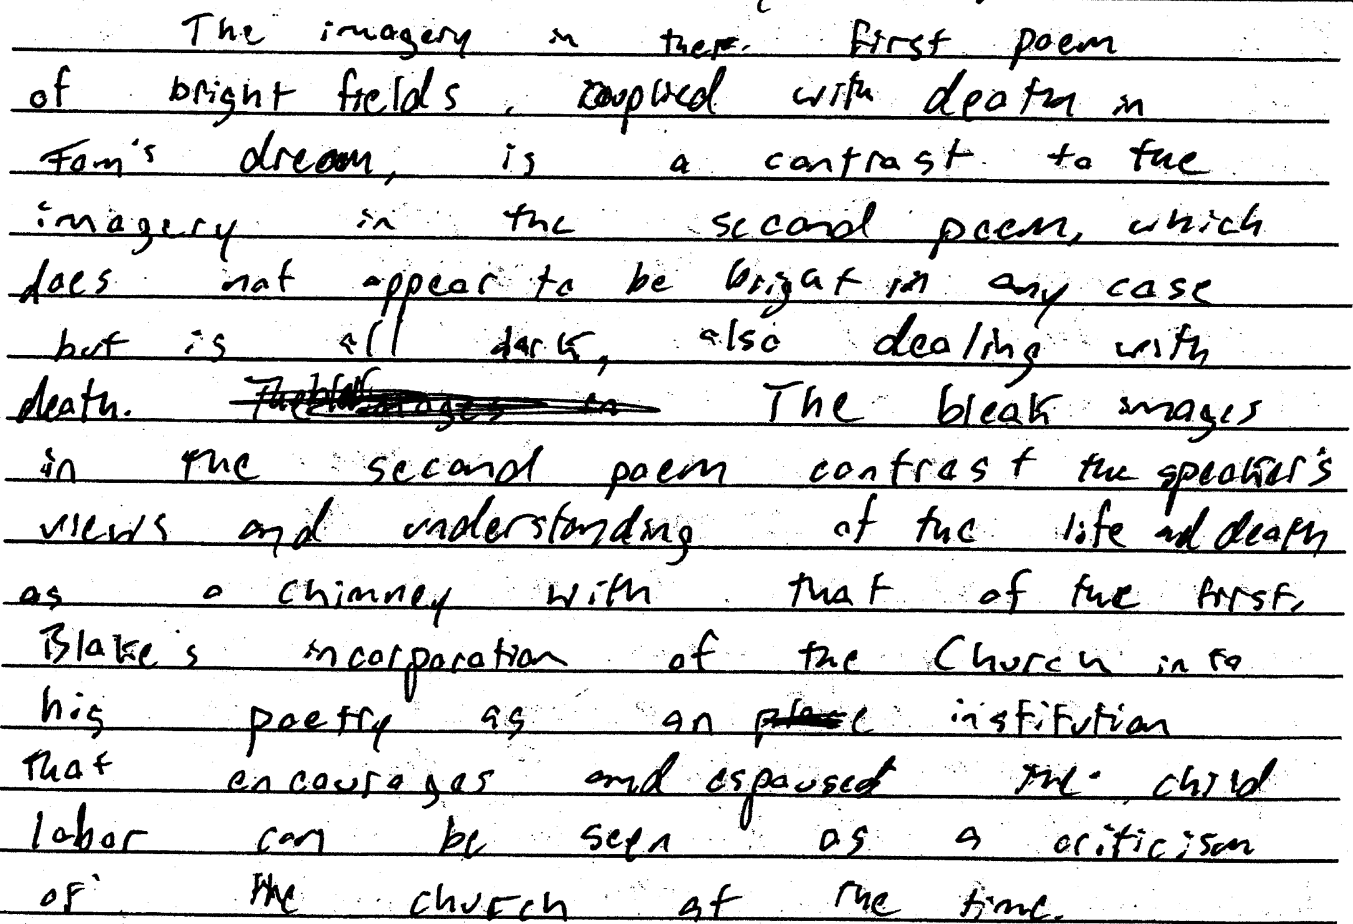 The imagery in the first poem
of bright fields, coupled with death in
Tom's dream, is a contrast to the
imagery in the second poem, which
does not appear to be bright in any case
but is all dark, also dealing with
death. The bleak images
in the second poem contrast the speaker's
views and understanding of the life and death
as a chimney with that of the first.
Blake's incorporation of the Church into
his poetry as an institution
that encourages and espoused the child
labor can be seen as a criticism
of the church at the time.